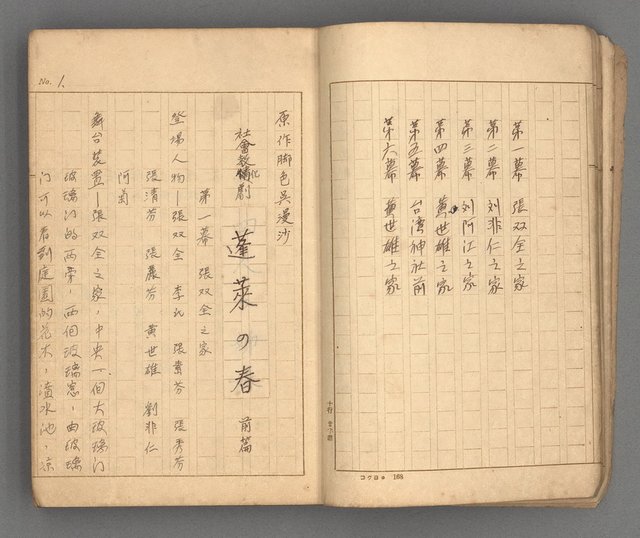 第一幕 張双全之家
第二幕 刘非仁之家
第三幕 刘阿江之家
第四幕 黄世雄之家
第五幕 台湾神社前
第六幕 黄世雄之家
十行 廿五詰
コクヨ 168
No. 1.
原作脚色吳漫沙
社會教化劇
蓬萊の春 前篇
第一幕 張双全之家
登場人物—張双全 李氏 張素芬 張秀芬
張清芬 張麗芬 黄世雄 劉非仁
阿菊
舞台裝置—張双全之家，中央一個大玻璃门
玻璃门的两旁，两個玻璃窓，由玻璃
门可以看到庭園的花木，濆水池，凉